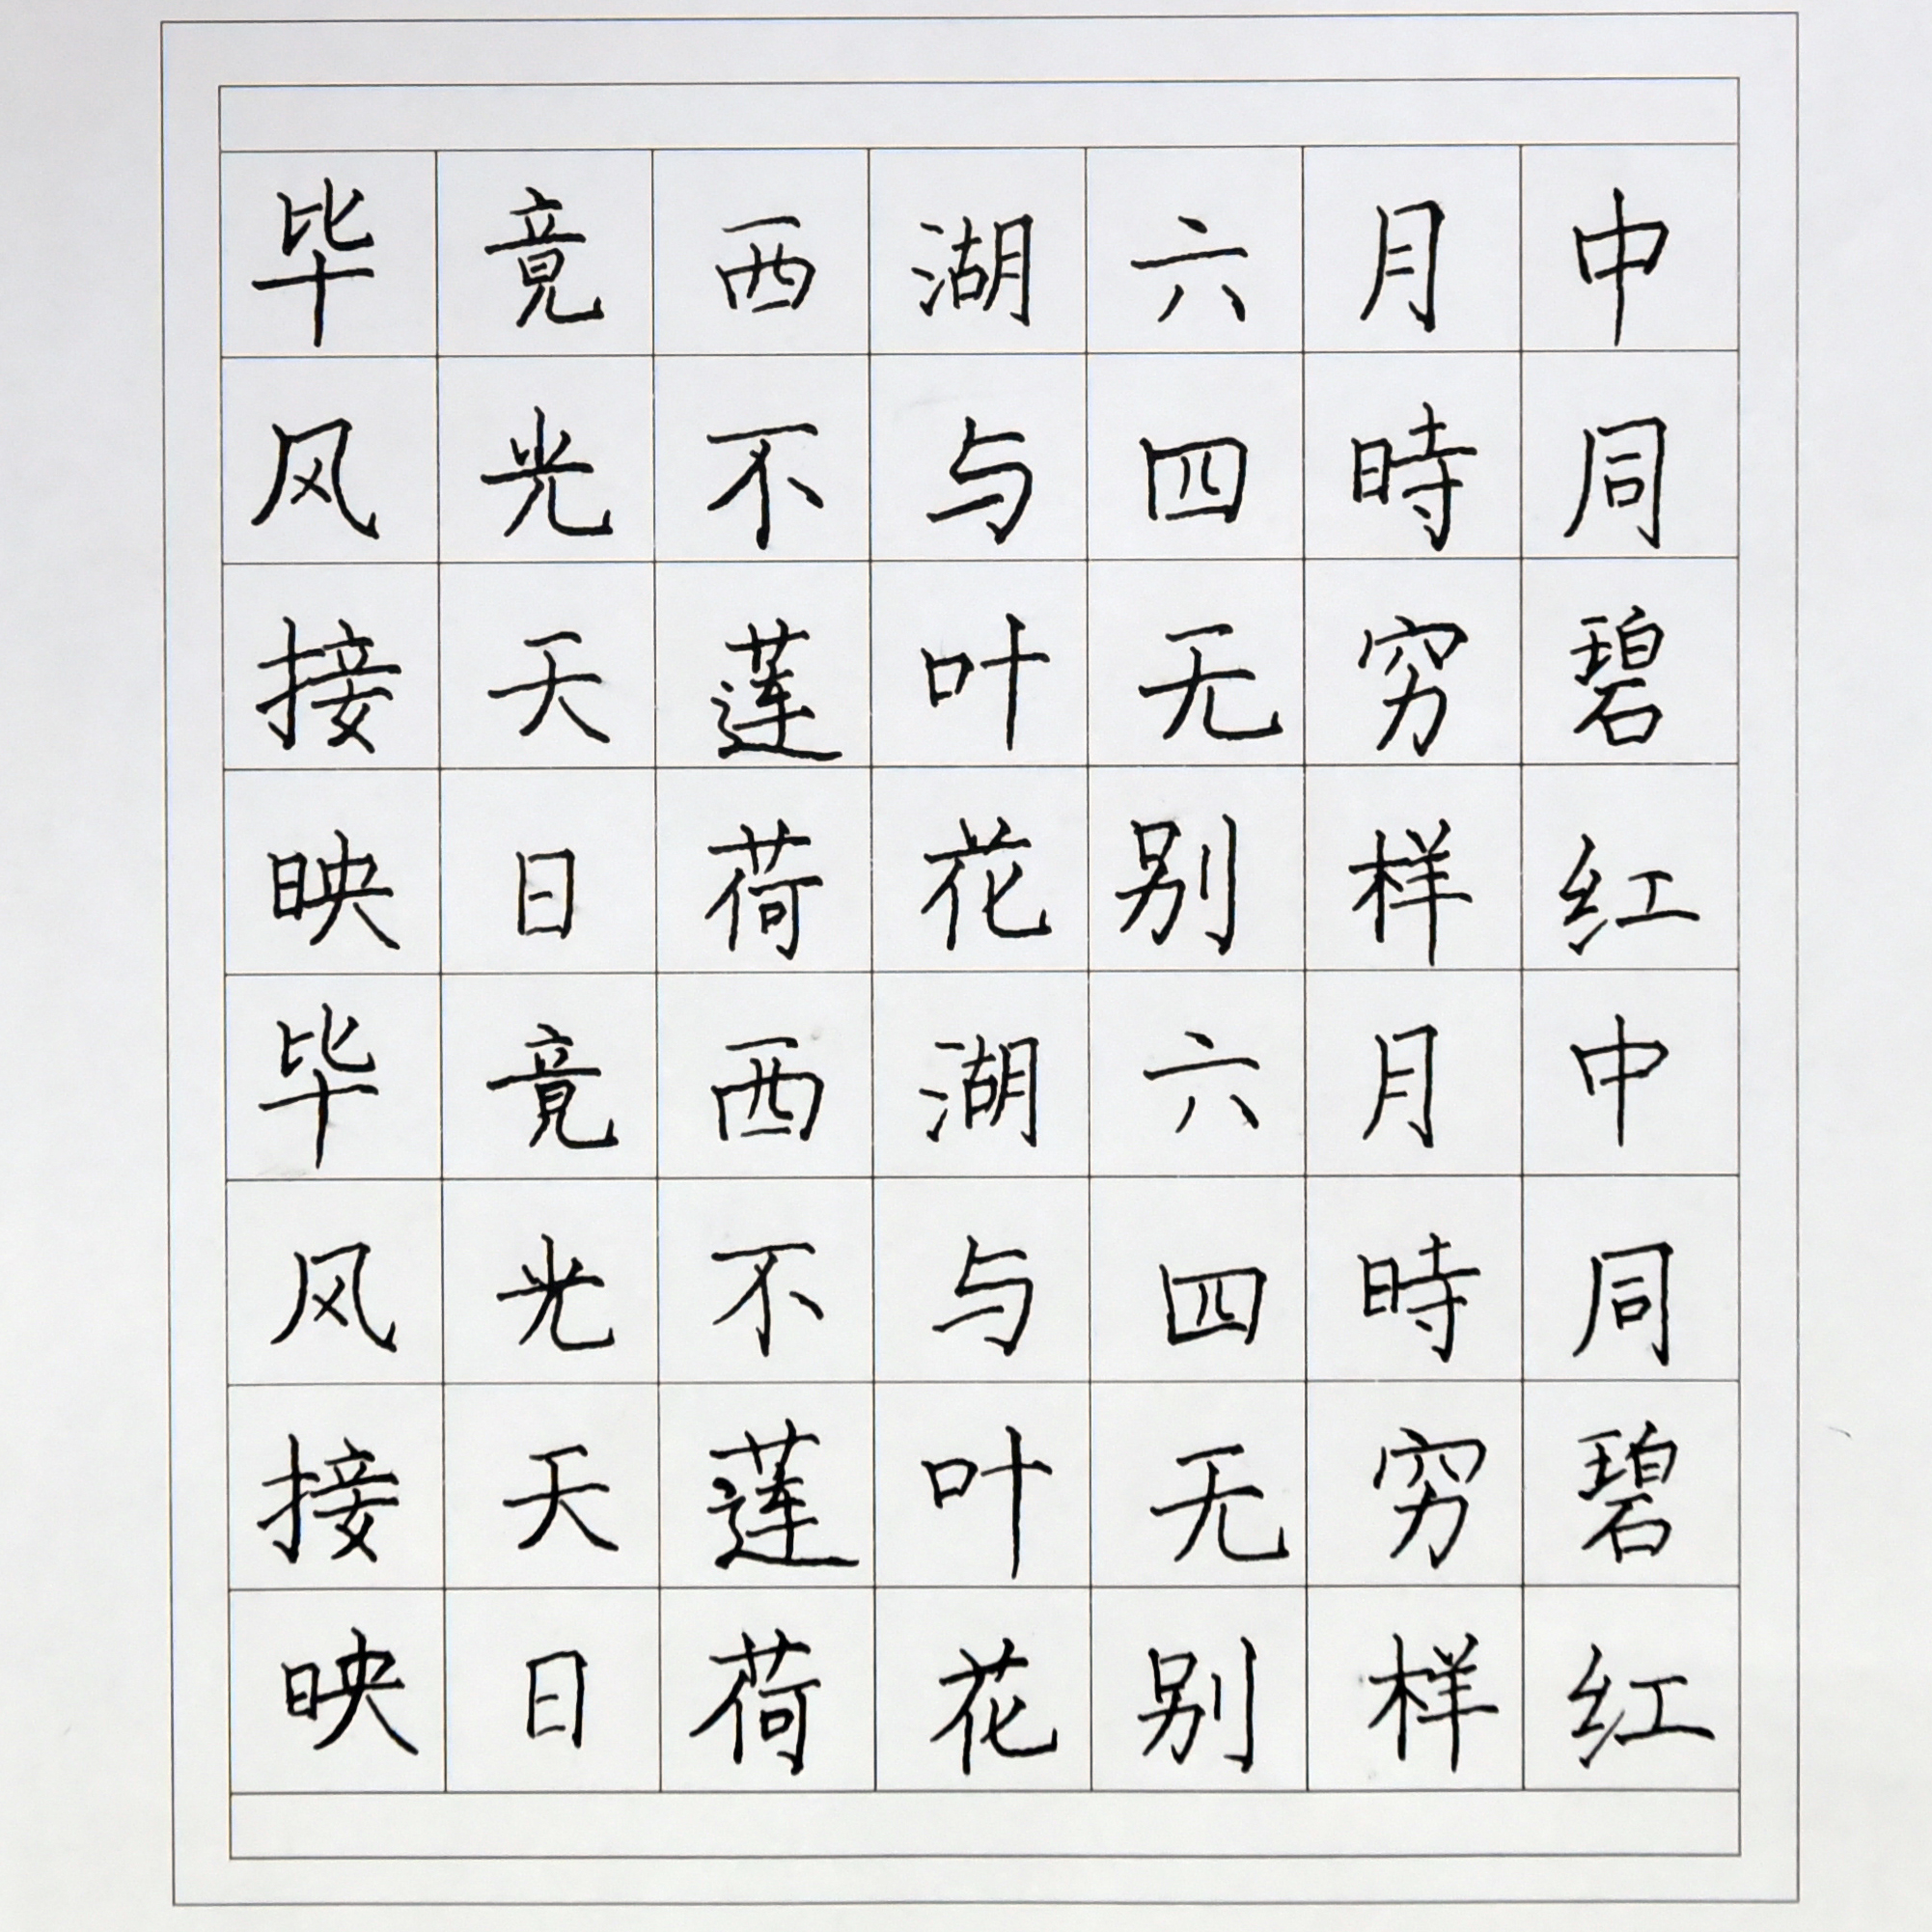 毕竟西湖六月中
风光不与四時同
接天莲叶无穷碧
映日荷花别样红
毕竟西湖六月中
风光不与四時同
接天莲叶无穷碧
映日荷花别样红